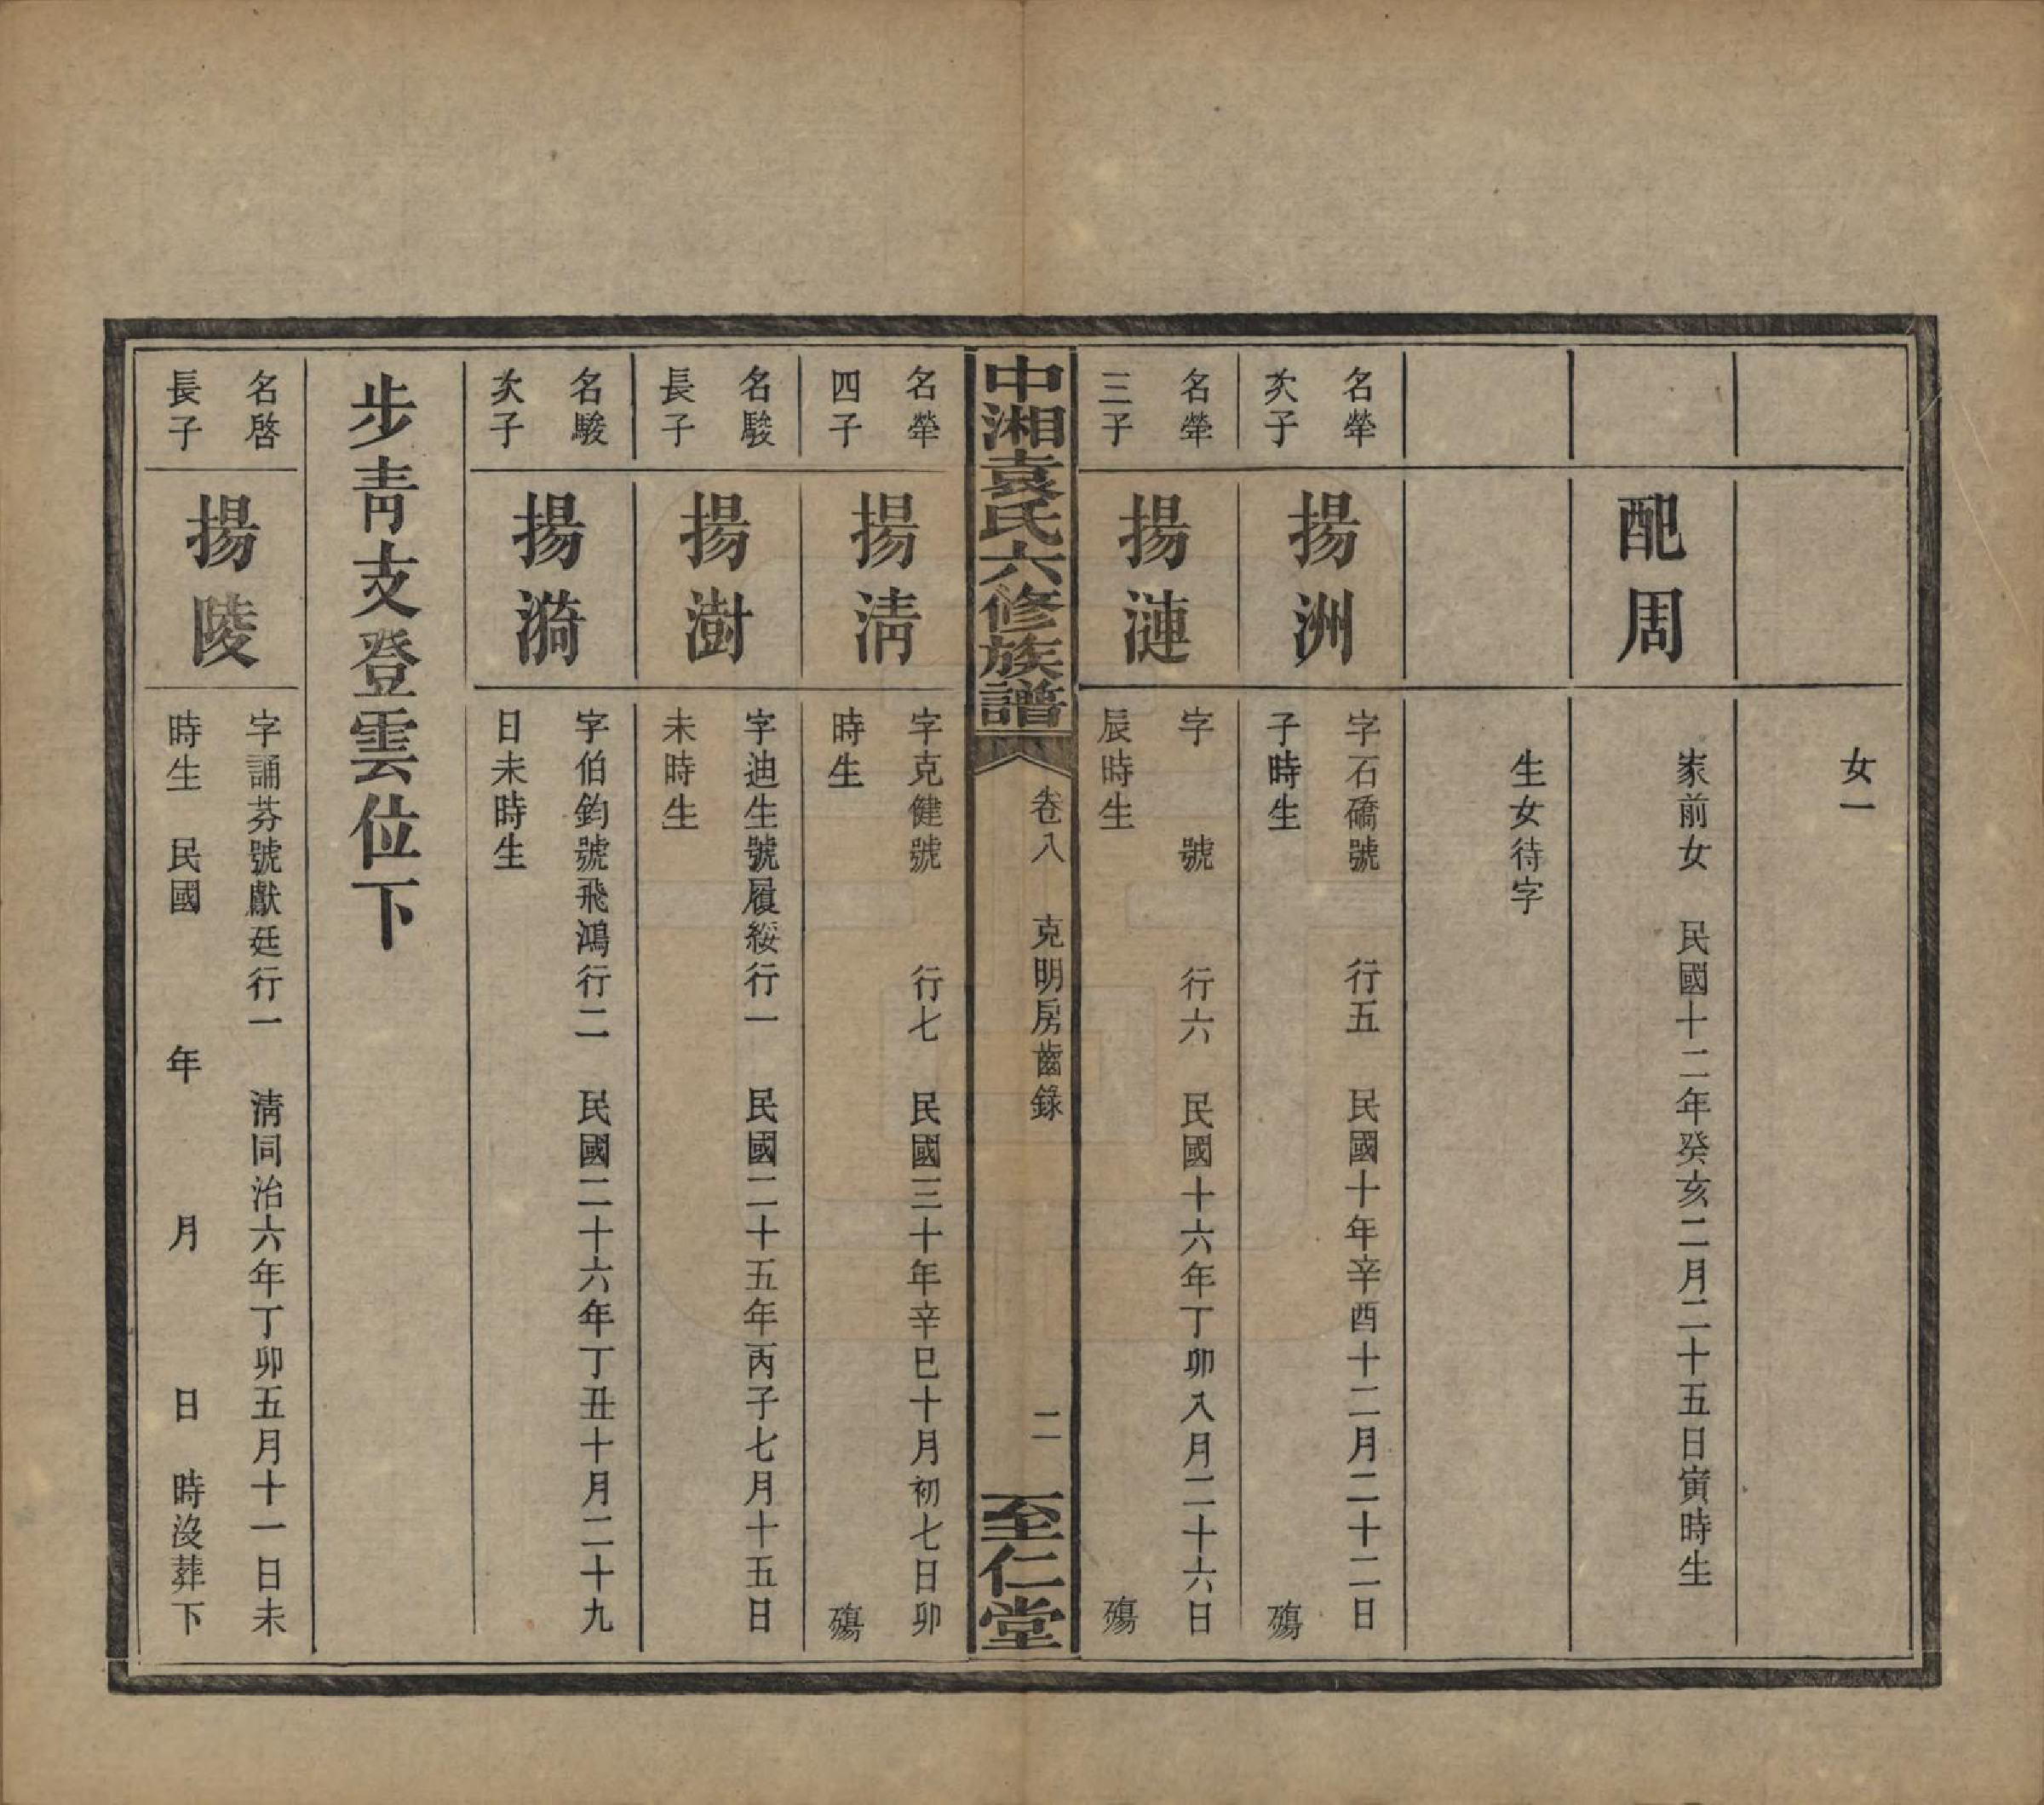 女一
配周
家前女　民國十二年癸亥二月二十五日寅時生
生女待字
名犖
次子
揚洲
字石礄號　行五　民國十年辛酉十二月二十二日
子時生　殤
名犖
三子
揚漣
字　號　行六　民國十六年丁卯八月二十六日
辰時生　殤
中湘袁氏六修族譜
卷八　克明房齒錄　二
至仁堂
名犖
四子
揚清
字克健號　行七　民國三十年辛巳十月初七日卯
時生　殤
名駿
長子
揚澍
字迪生號履綏行一　民國二十五年丙子七月十五日
未時生
名駿
次子
揚漪
字伯鈞號飛鴻行二　民國二十六年丁丑十月二十九
日未時生
步青支登雲位下
名啓
長子
揚陵
字誦芬號獻廷行一　清同治六年丁卯五月十一日未
時生　民國　年　月　日　時沒葬下